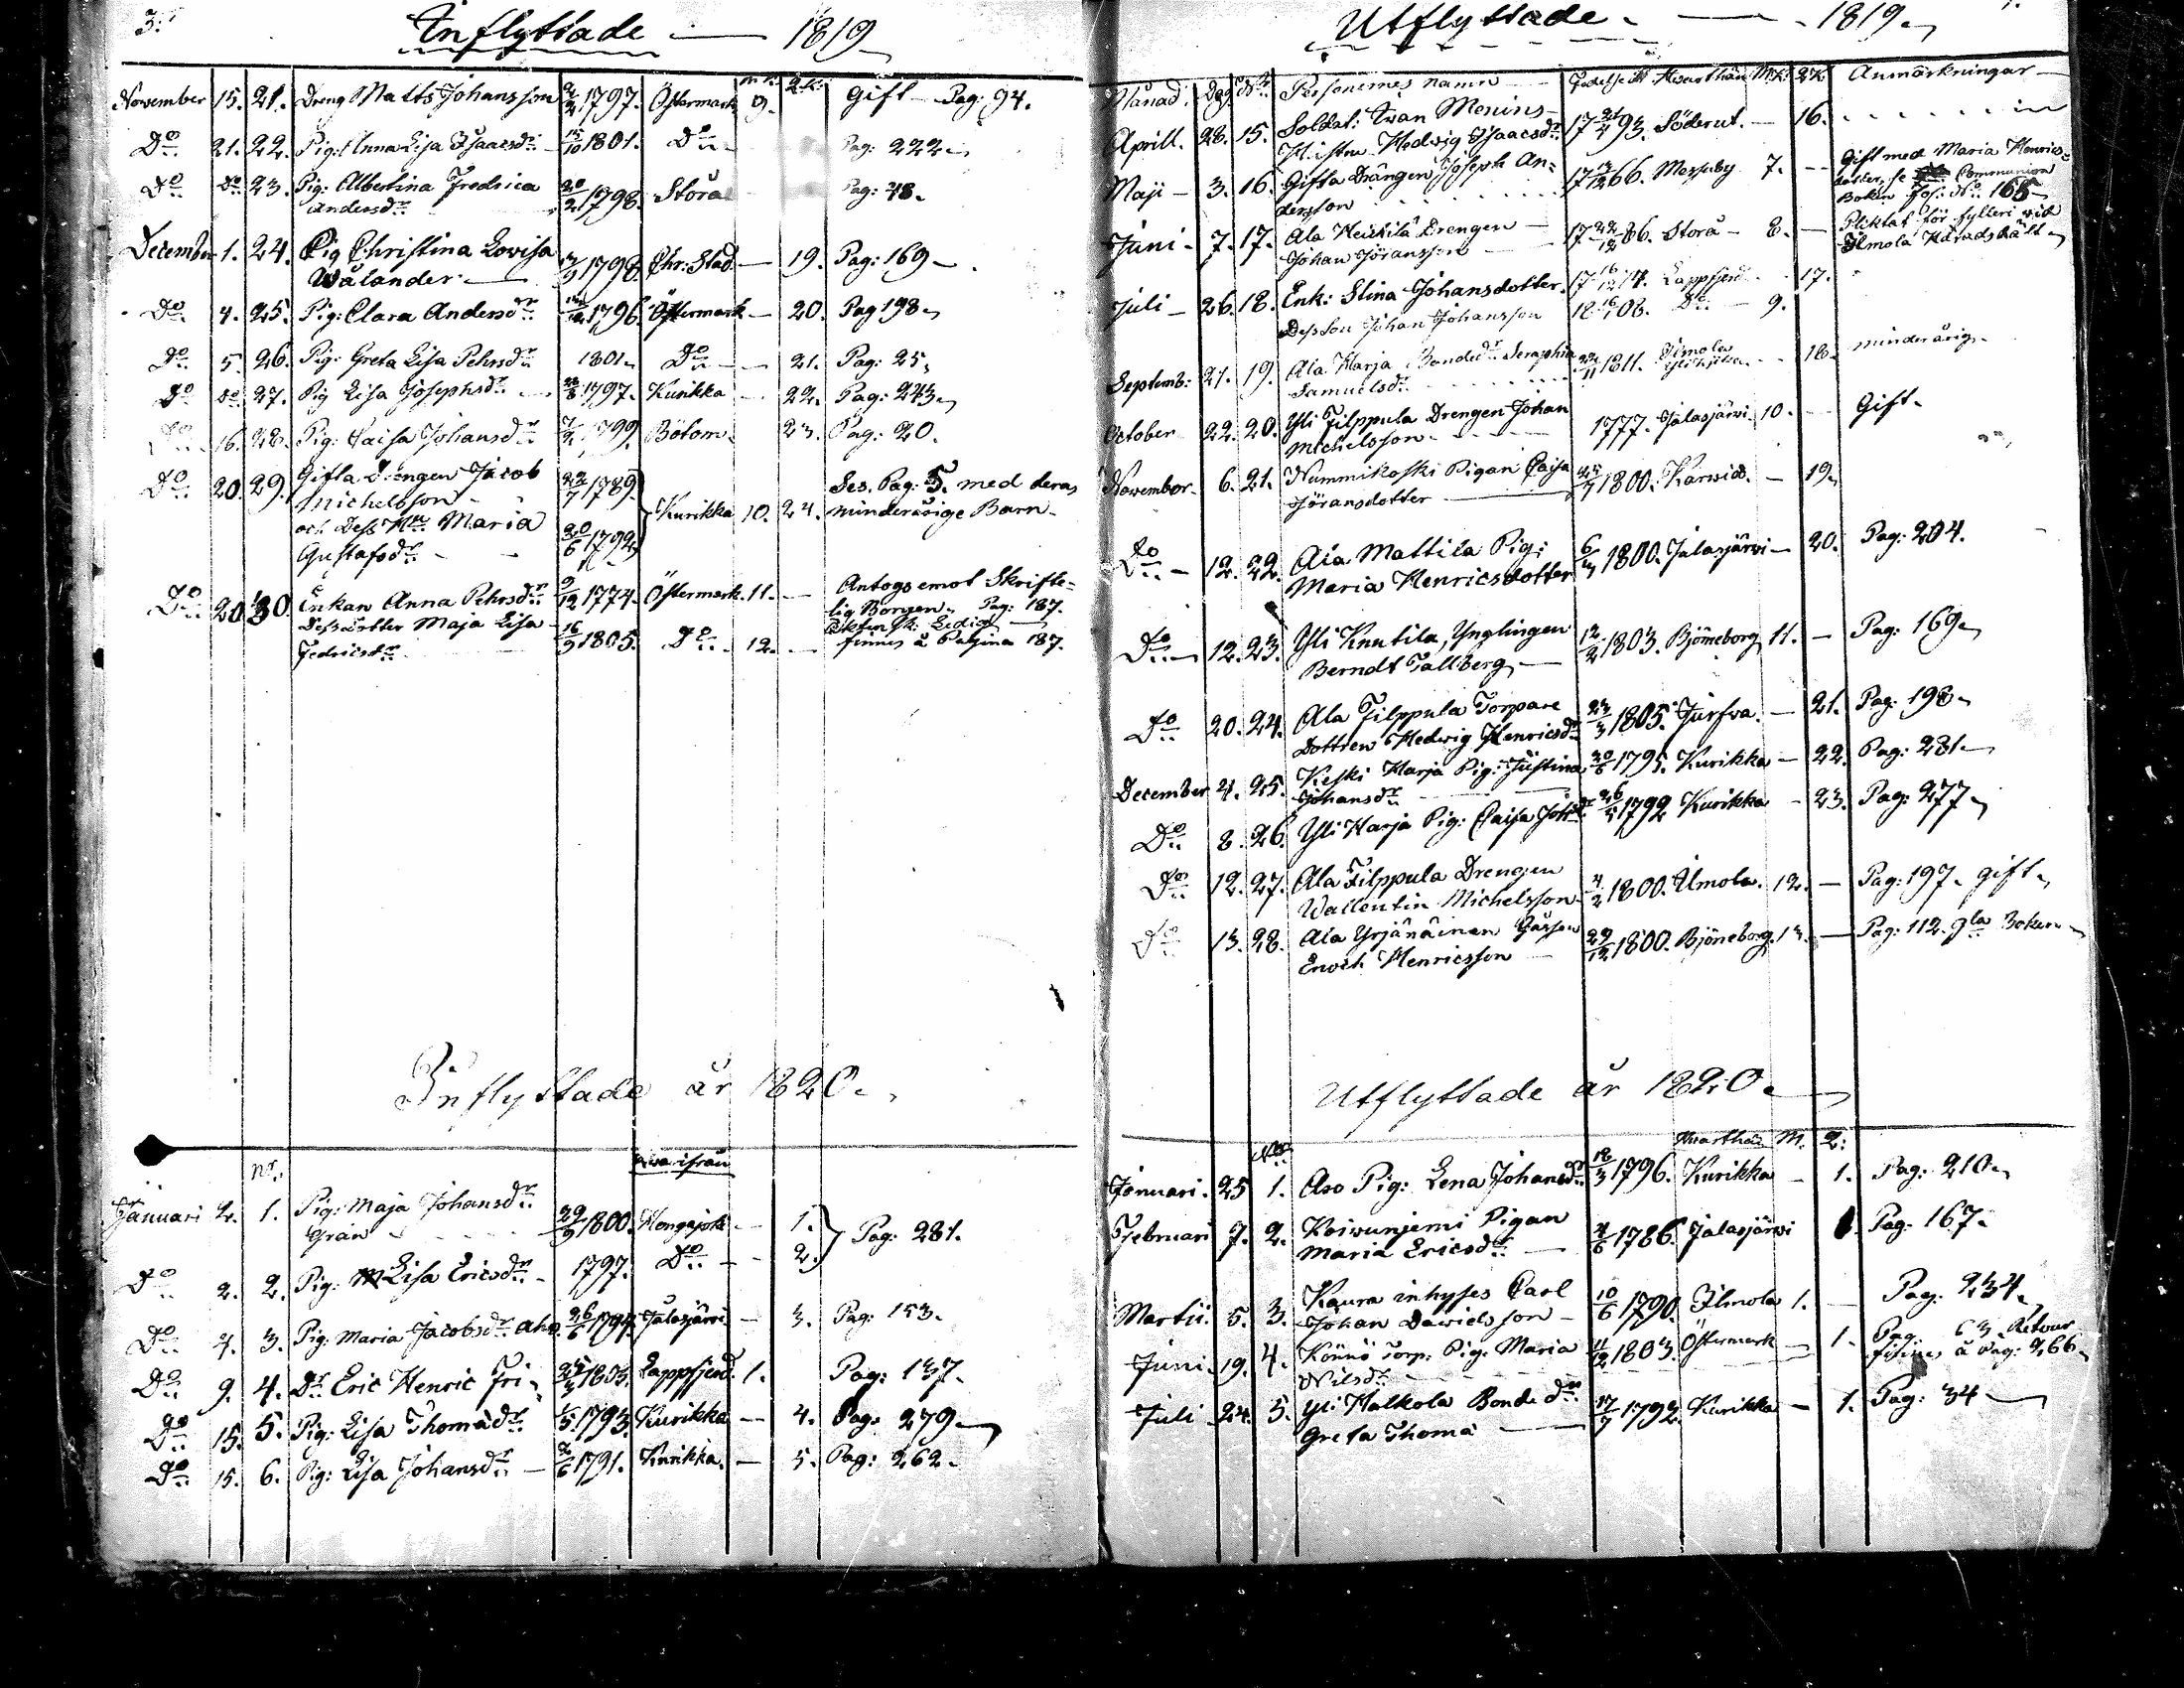 3.
Inflyttade — 1819
November 15. 21. Dreng Matts Johansson 1797. Östermark 9. Gift — Pag: 94.
Do 21. 22. Pig: Anna Lisa Isaacsdr 15/10 1801. Do Pag: 222
Do Do 23. Pig: Albertina Fredrica 20/2 1798. Storå Pag: 78.
Andersdr
December 1. 24. Pig Christina Lovisa
Wålander 1798. Chr: Stad — 19. Pag: 169
Do 4. 25. Pig: Clara Andersdr 1796. Östermark — 20. Pag 198
Do 5. 26. Pig: Greta Lisa Pehrsdr 1801 Do — 21. Pag: 25
Do Do 27. Pig Lisa Josephsdr 1797. Kurikka — 22. Pag: 243
Do 16. 28. Pig: Caisa Johansdr 1799. Bötom. 23. Pag: 20.
Do 20. 29. Gifta Drengen Jacob 22/7 1789
Michelsson
och Dess Hu Maria 30/6 1792 Kurikka 10. 24. Ses. Pag: 5. med deras
Gustafsdr minderårige Barn
Do 20 30. Enkan Anna Pehrsdr 9/12 1774. Östermark. 11. — Antogs emot Skrifte-
lig Borgen. Pag: 187.
Dess dotter Maja Lisa 16/3 1805. Do 12. —
finnes å Pagina 187.
Inflyttade år 1820.
No. hvarifrån
Januari 2. 1. Pig: Maja Johansdr
Grån 29/9 1800. Kongajoki — 1. Pag: 281.
Do 2. 2. Pig: Lisa Ericsdr 1797. Do — 2.
Do 4. 3. Pig: Maria Jacobsdr Aho 26/6 1794 Jalasjärvi — 3. Pag: 153.
Do 9. 4. Dr Eric Henric Fri 25/3 1803. Lappfjerd. 1. Pag: 137.
Do 15. 5. Pig: Lisa Thomådr 1/5 1793. Kurikka — 4. Pag: 279
Do 15. 6. Pig: Lisa Johansdr 2/6 1791. Kurikka. — 5. Pag: 262
Utflyttade — 1819
Månad. Dag No Personernes namn Födelse år Hvarthän M.K. Q.K. Anmärkningar
Aprill. 28. 15. Soldat: Ivan Monins
Hustru Hedvig Isaacsdr 17 21/4 93. Söderut. — 16.
Maji — 3. 16. Gifta Drängen Joseph An-
dersson 17 66. Mossaby 7. — Gift med Maria Henrics-
dotter, se Communion
Boken Fol: No 165
Juni — 7. 17. Ala Heikkilä Drengen
Johan Jöransson 17 86. Storå — 8. — Pliktat för fylleri vid
Ilmola Häradsrätt
Juli — 26. 18. Enk: Stina Johansdotter. 17 74. Lappfjerd 17.
Dess Son Johan Johansson 18 08. Do — 9.
Septemb: 21. 19. Ala Harja Bondedr Seraphia
Samuelsdr 1811. Ilmola 18. minderårig
October 22. 20. Yli Filppula Drengen Johan
Michelsson 1777. Jalasjärvi 10. — Gift
November. 6. 21. Nummikoski Pigan Caisa
Jöransdotter 1800. Karvia. — 19.
Do — 12. 22. Ala Mattila Pig:
Maria Henricsdotter 1800. Jalasjärvi — 20. Pag: 204.
Do 12. 23. Yli Knutila, Ynglingen
Berndt Tallberg 12/2 1803. Björneborg 11. — Pag: 169
Do 20. 24. Ala Filppula Torpare
Dottren Hedvig Henricsdr 23/3 1805. Jurfva. — 21. Pag: 198
December 4. 25. Keski Harja Pig: Justina
Johansdr 30/6 1795. Kurikka — 22. Pag: 281
Do 8. 26. Yli Harja Pig: Caisa Johdr 1792 Kurikka — 23. Pag: 277
Do 12. 27. Ala Filppula Drengen
Wallentin Michelsson 4/2 1800. Ilmola. 12. — Pag: 197 gift
Do 13. 28. Ala Yrjänäinen Gossen
Enoch Henricsson 29/12 1800. Björneborg. 13. — Pag: 112. gla Boken
Utflyttade år 1820.
No hvarthän M. Q.
Januari. 25 1. Aro Pig: Lena Johansdr 18/3 1796. Kurikka — 1. Pag: 210
Februari 7. 2. Koivunjemi Pigan
Maria Ericsdr 1786. Jalasjärvi Pag: 167.
Martii. 5. 3. Kaura inhyses Carl
Johan Davidsson 10/6 1790. Ilmola 1. — Pag: 234.
Juni. 19. 4. Könnö Torp: Pig: Maria
Nilsdr 1803. Östermark — 1. Pag: 63. Retour
finnes å Pag: 266
Juli 24. 5. Yli Halkola Bonde dr
Greta Thomå 17/7 1792. Kurikka — 1. Pag: 34